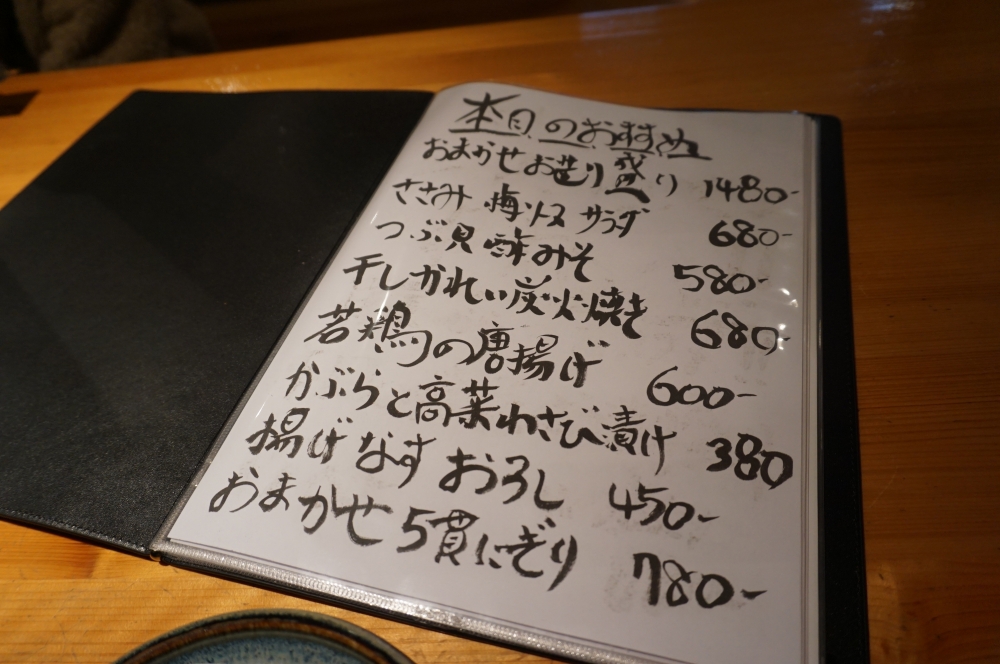 本日のお執め
おまかせお造り盛り 1480-
ささみ 梅ソース サラダ 680-
つぶ貝酢みそ 580-
干しかれい炭火焼き 680-
若鶏の唐揚げ 600-
かぶらと高菜わさび漬け 380
揚げなすおろし 450-
おまかせ5貫にぎり 780-